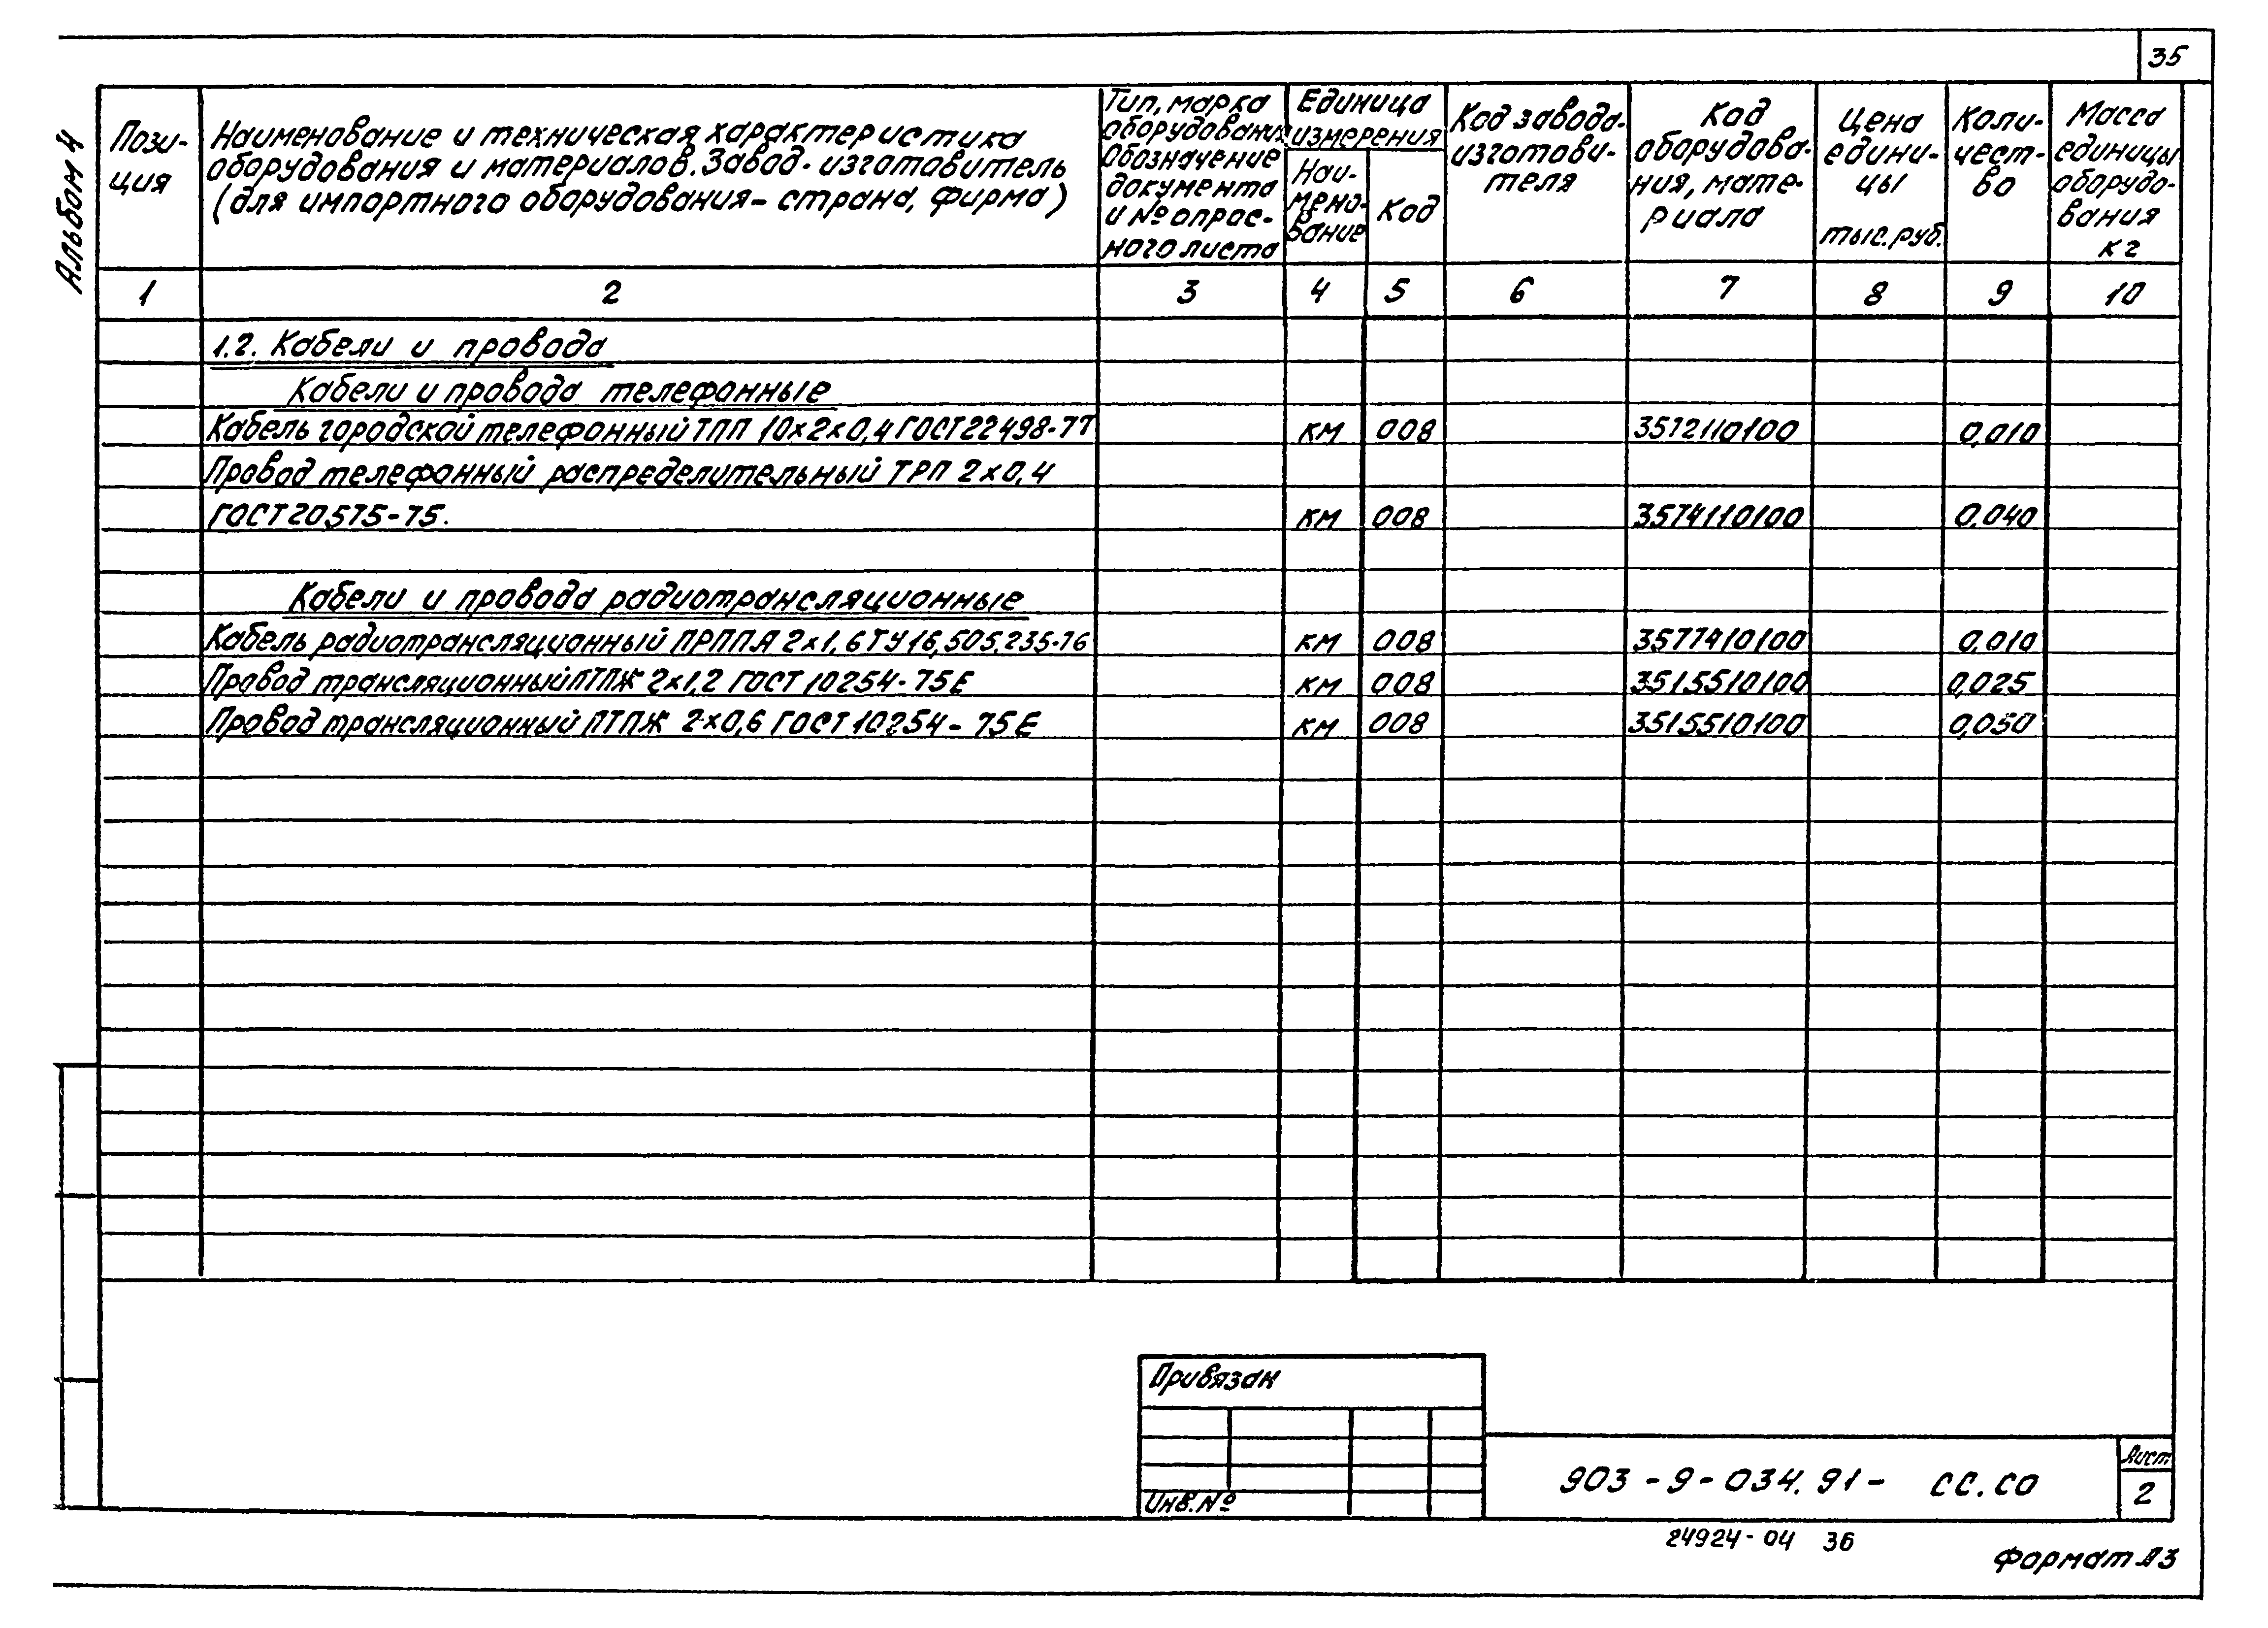 35
Альбом 4
Пози-
ция
Наименование и техническая характеристика
оборудования и материалов. Завод-изготовитель
(для импортного оборудования – страна, фирма)
Тип, марка
оборудования
Обозначение
документа
и № опрос-
ного листа
Единица
измерения
Наи-
мено-
вание
Код
Код завода-
изготови-
теля
Код
оборудова-
ния, мате-
риала
Цена
едини-
цы
тыс.руб.
Коли-
чест-
во
Масса
единицы
оборудо-
вания
кг
1 2 3 4 5 6 7 8 9 10
1.2. Кабели и провода
Кабели и провода телефонные
Кабель городской телефонный ТПП 10х2х0,4 ГОСТ 22498-77 км 008 3572110100 0,010
Провод телефонный распределительный ТРП 2х0,4
ГОСТ 20575-75. км 008 3574110100 0,040
Кабели и провода радиотрансляционные
Кабель радиотрансляционный ПРППА 2х1,6 ТУ 16.505.235-76 км 008 3577410100 0,010
Провод трансляционный ПТПЖ 2х1,2 ГОСТ 10254-75Е км 008 3515510100 0,025
Провод трансляционный ПТПЖ 2х0,6 ГОСТ 10254-75Е км 008 3515510100 0,050
Привязан
Инв.№
903-9-034.91- СС.СО
Лист
2
24924-04 36
Формат А3